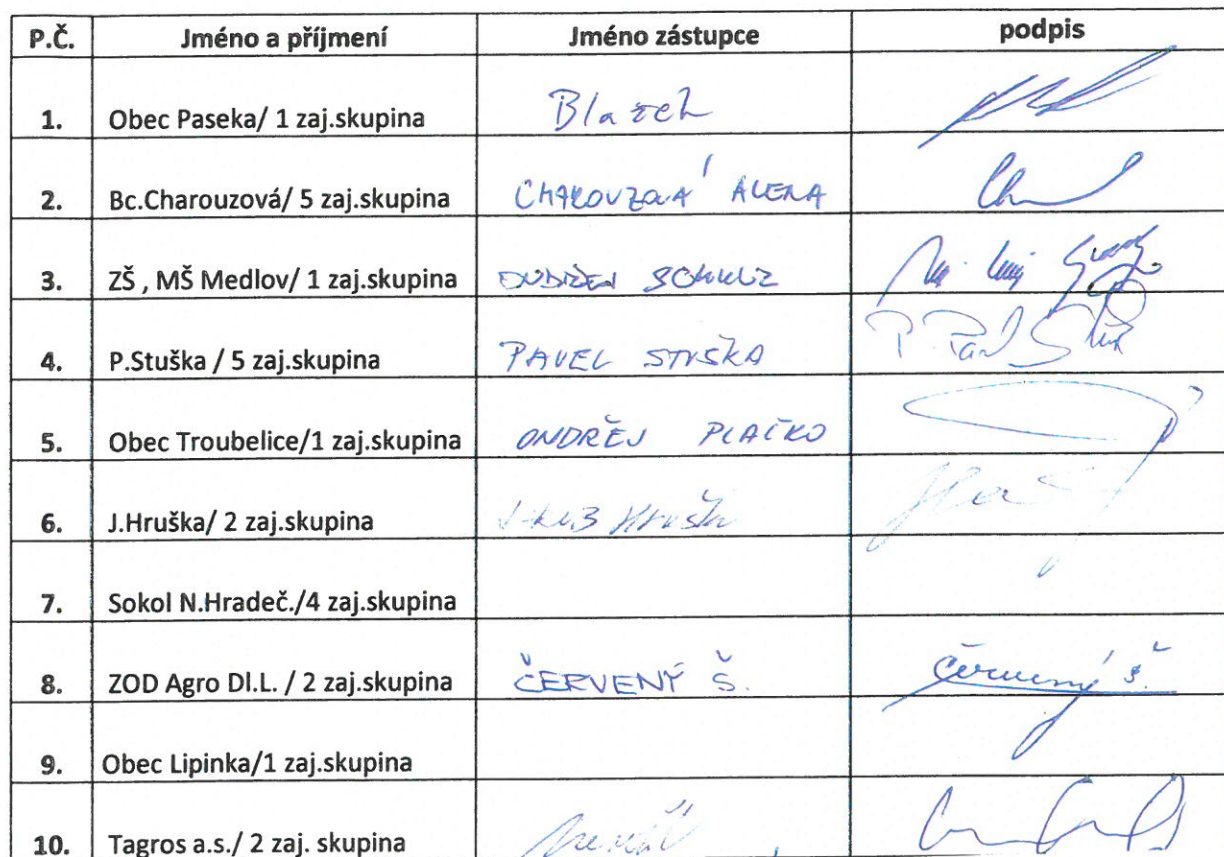 P.Č. Jméno a příjmení Jméno zástupce podpis
1. Obec Paseka/ 1 zaj.skupina Blazek
2. Bc.Charouzová/ 5 zaj.skupina CHAROUZOVÁ ALENA
3. ZŠ , MŠ Medlov/ 1 zaj.skupina
4. P.Stuška / 5 zaj.skupina PAVEL STUŠKA
5. Obec Troubelice/1 zaj.skupina ONDŘEJ PLAČKO
6. J.Hruška/ 2 zaj.skupina
7. Sokol N.Hradeč./4 zaj.skupina
8. ZOD Agro Dl.L. / 2 zaj.skupina ČERVENÝ Š. Červený Š.
9. Obec Lipinka/1 zaj.skupina
10. Tagros a.s./ 2 zaj. skupina